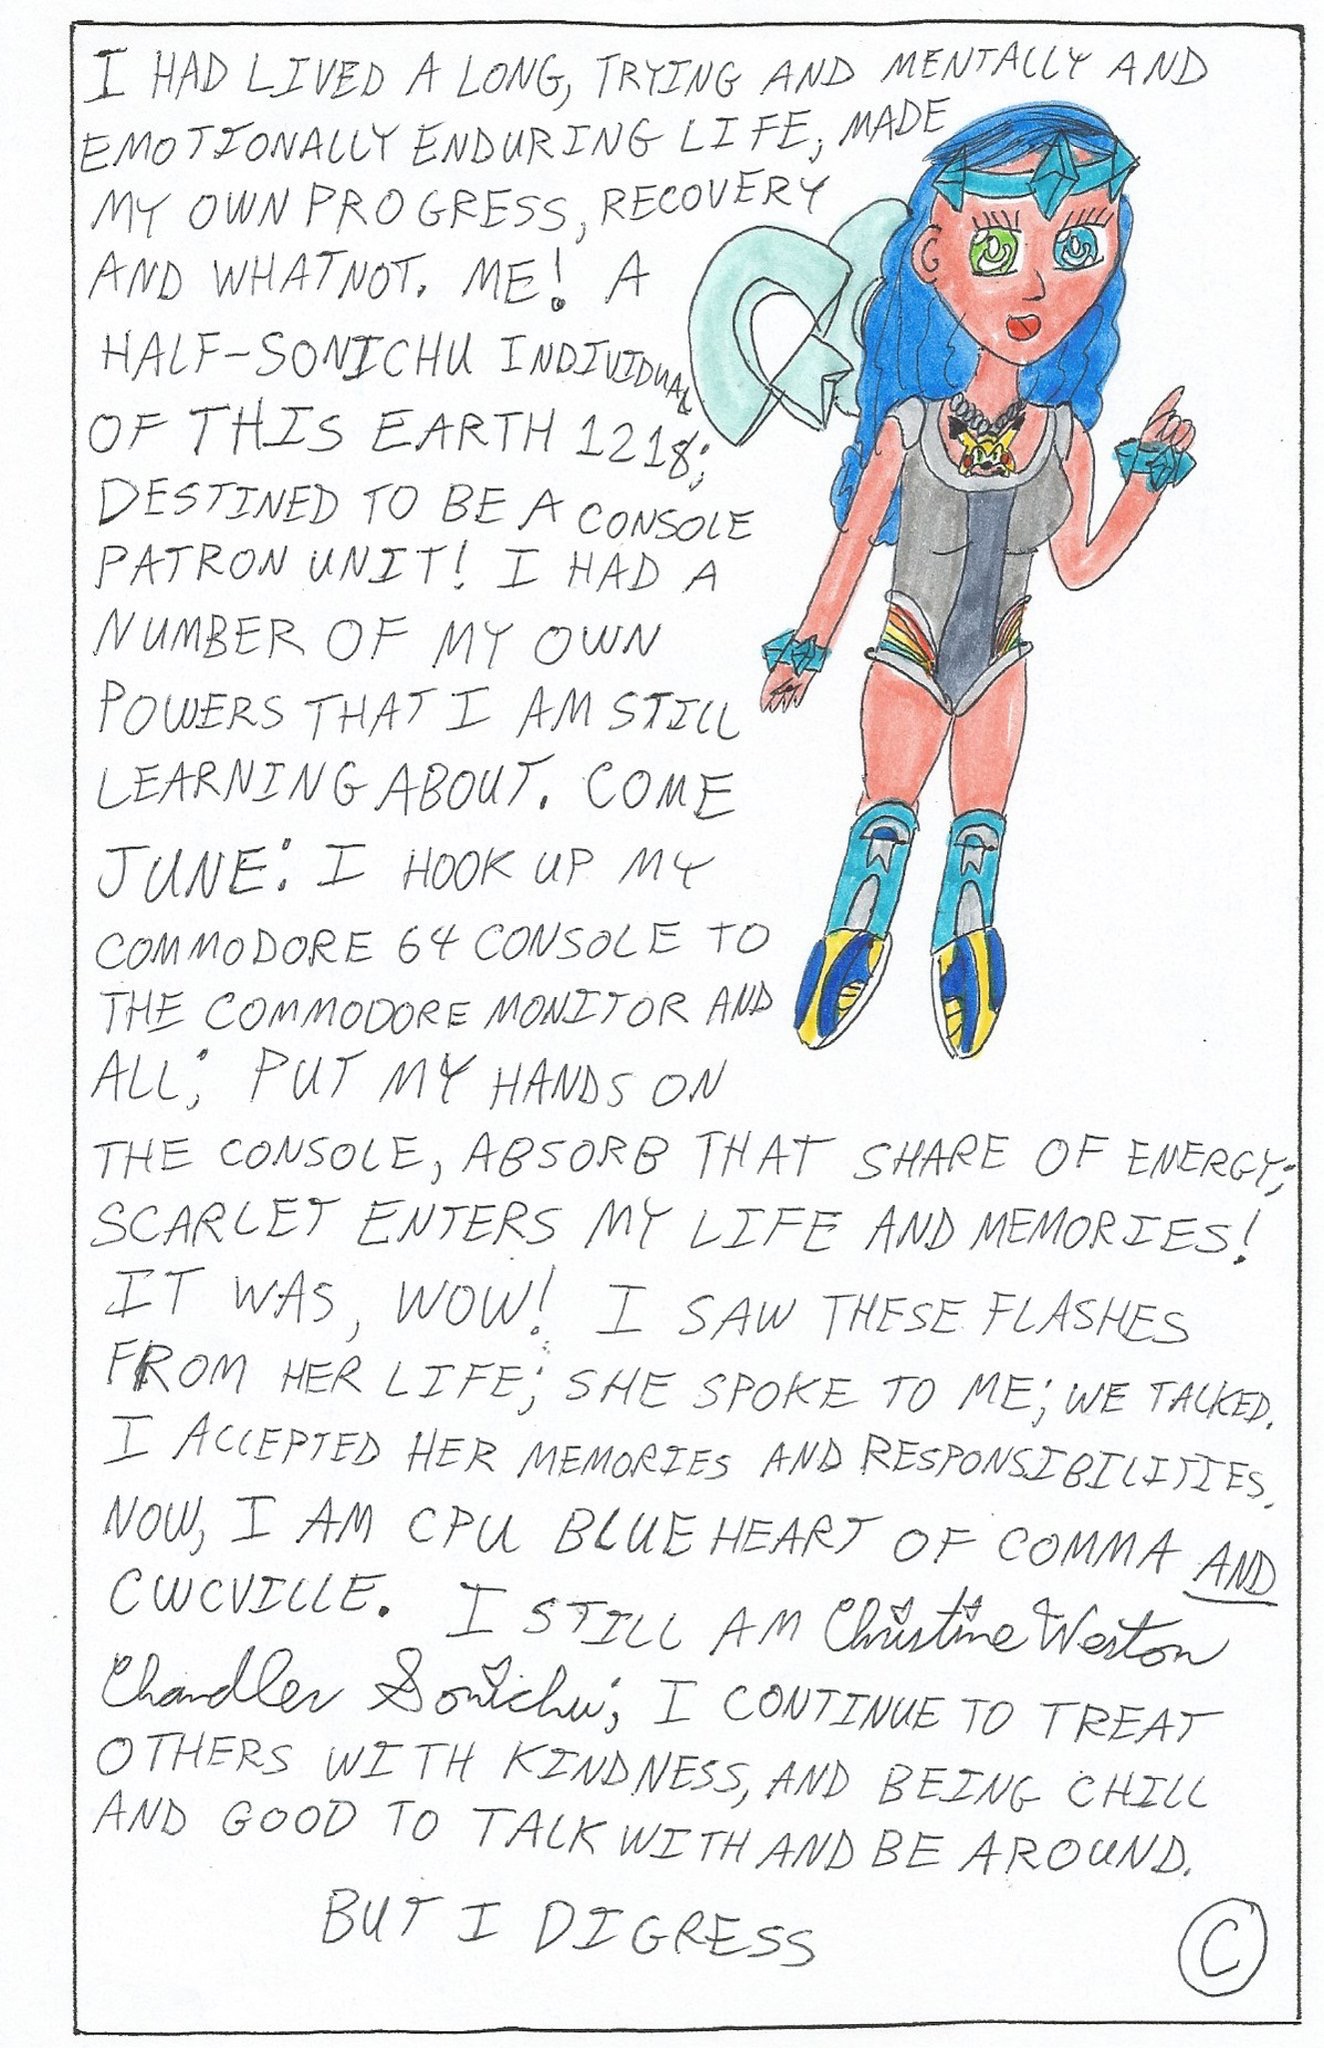 I HAD LIVED A LONG, TRYING AND MENTALLY AND
EMOTIONALLY ENDURING LIFE, MADE
MY OWN PROGRESS, RECOVERY
AND WHATNOT. ME! A
HALF-SONICHU INDIVIDUAL
OF THIS EARTH 1218;
DESTINED TO BE A CONSOLE
PATRON UNIT! I HAD A
NUMBER OF MY OWN
POWERS THAT I AM STILL
LEARNING ABOUT. COME
JUNE: I HOOK UP MY
COMMODORE 64 CONSOLE TO
THE COMMODORE MONITOR AND
ALL; PUT MY HANDS ON
THE CONSOLE, ABSORB THAT SHARE OF ENERGY;
SCARLET ENTERS MY LIFE AND MEMORIES!
IT WAS, WOW! I SAW THESE FLASHES
FROM HER LIFE; SHE SPOKE TO ME; WE TALKED.
I ACCEPTED HER MEMORIES AND RESPONSIBILITIES.
NOW, I AM CPU BLUE HEART OF COMMA AND
CWCVILLE. I STILL AM Christine Weston
Chandler Sonichu; I CONTINUE TO TREAT
OTHERS WITH KINDNESS, AND BEING CHILL
AND GOOD TO TALK WITH AND BE AROUND.
BUT I DIGRESS
©